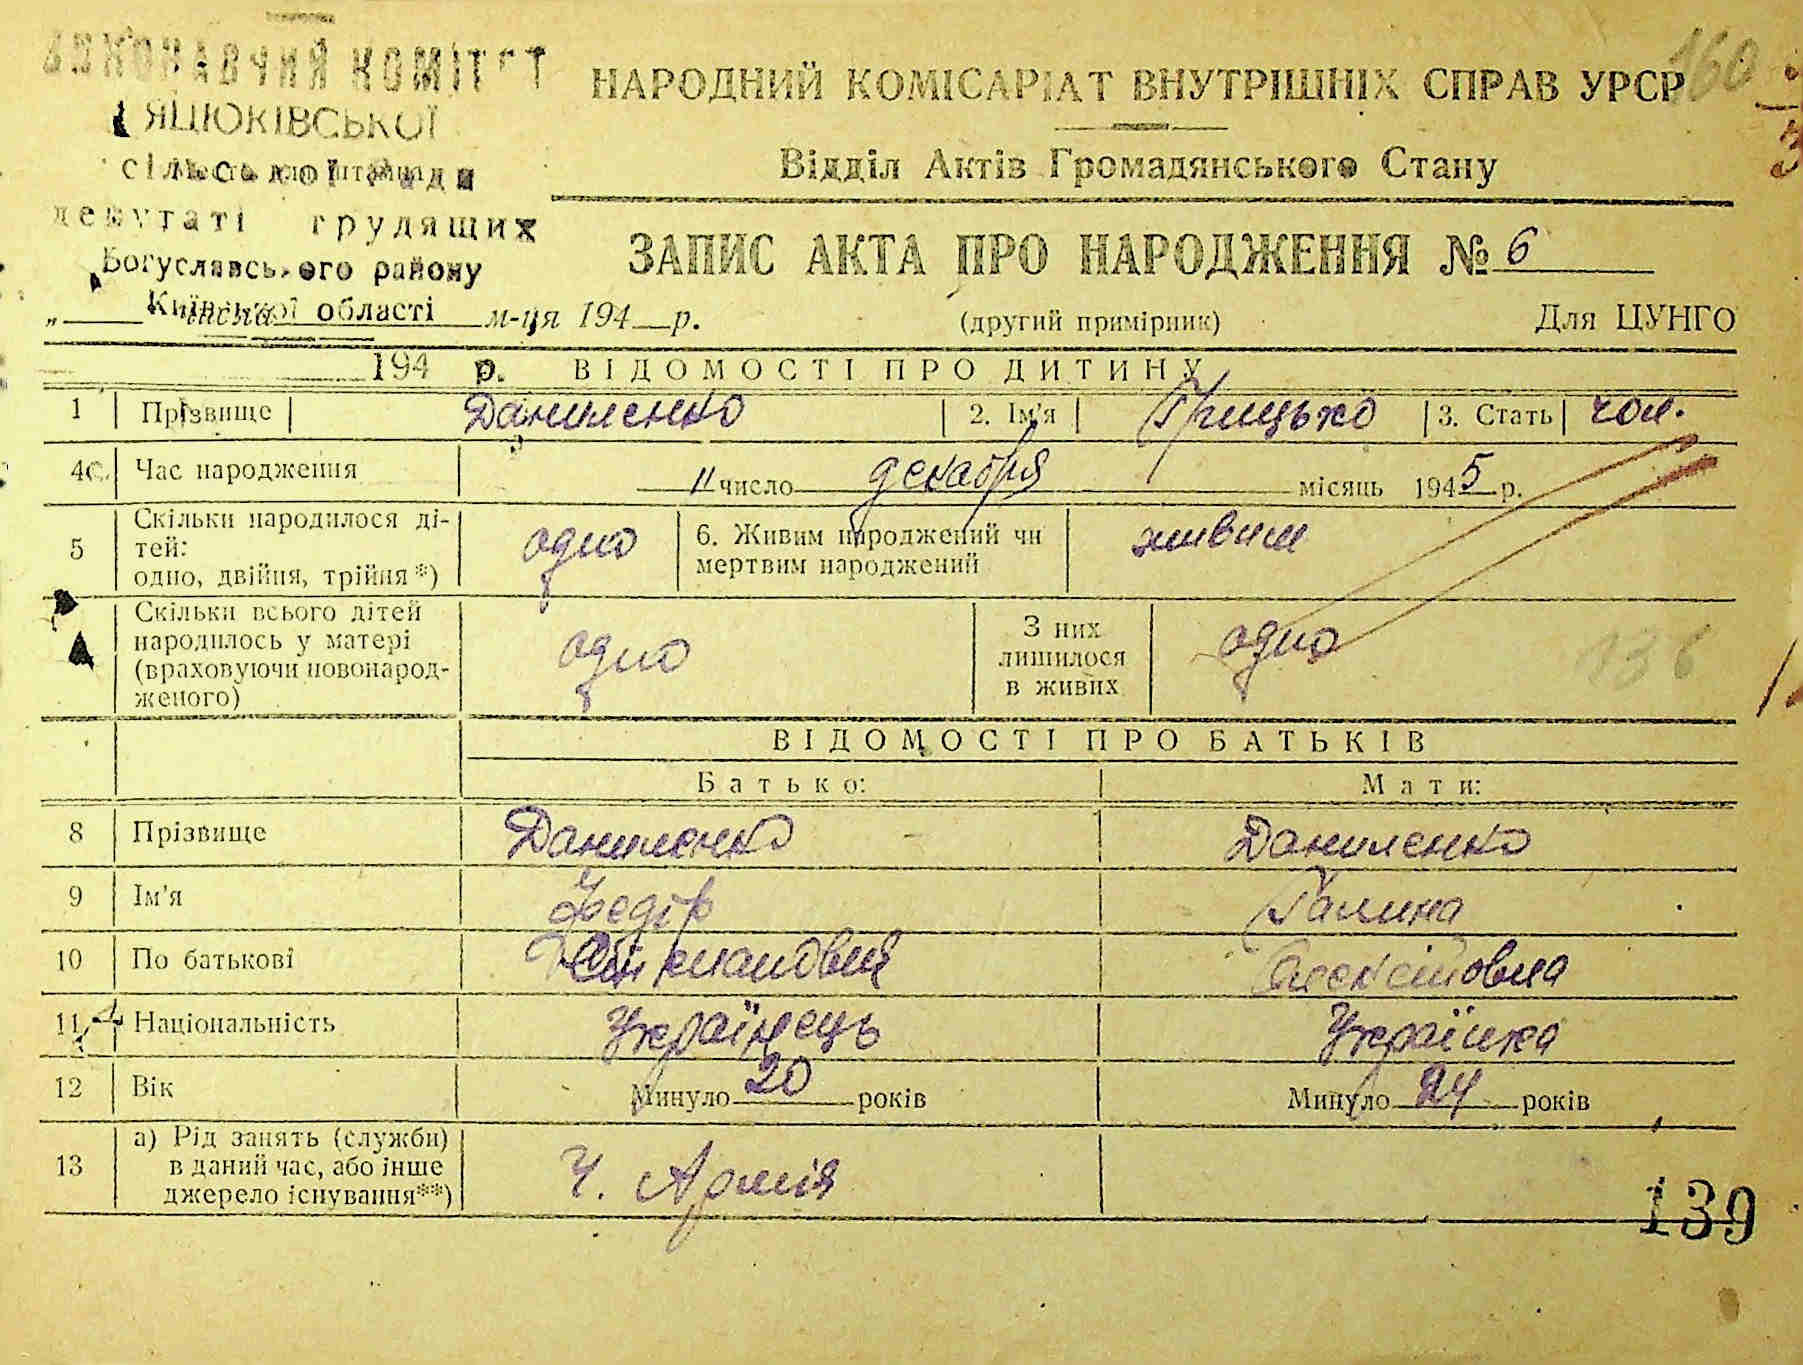 160
ВИКОНАВЧИЙ КОМІТЕТ
ЯЦЮКІВСЬКОЇ
сільської ради
депутатів трудящих
Богуславського району
Київської області
НАРОДНИЙ КОМІСАРІАТ ВНУТРІШНІХ СПРАВ УРСР
Відділ Актів Громадянського Стану
ЗАПИС АКТА ПРО НАРОДЖЕННЯ № 6
„ м-ця 194 р. (другий примірник) Для ЦУНГО
194 р. ВІДОМОСТІ ПРО ДИТИНУ
1 Прізвище Даниленко 2. Ім'я Грицько 3. Стать чол.
4 Час народження 11 число декабря місяць 1945 р.
5 Скільки народилося ді-
тей:
одно, двійня, трійня*) одно 6. Живим народжений чи
мертвим народжений живим
Скільки всього дітей
народилось у матері
(враховуючи новонарод-
женого) одно З них
лишилося
в живих одно
136
ВІДОМОСТІ ПРО БАТЬКІВ
Батько: Мати:
8 Прізвище Даниленко Даниленко
9 Ім'я Федір Галина
10 По батькові Олексійовна
11 Національність Українець Українка
12 Вік Минуло 20 років Минуло 24 років
13 а) Рід занять (служби)
в даний час, або інше
джерело існування**) Ч. Армія
139